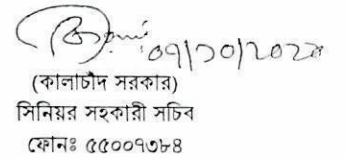 ০৭/১০/২০২০
(কালাচাঁদ সরকার)
সিনিয়র সহকারী সচিব
ফোনঃ ৫৫০০৭৩৮৪